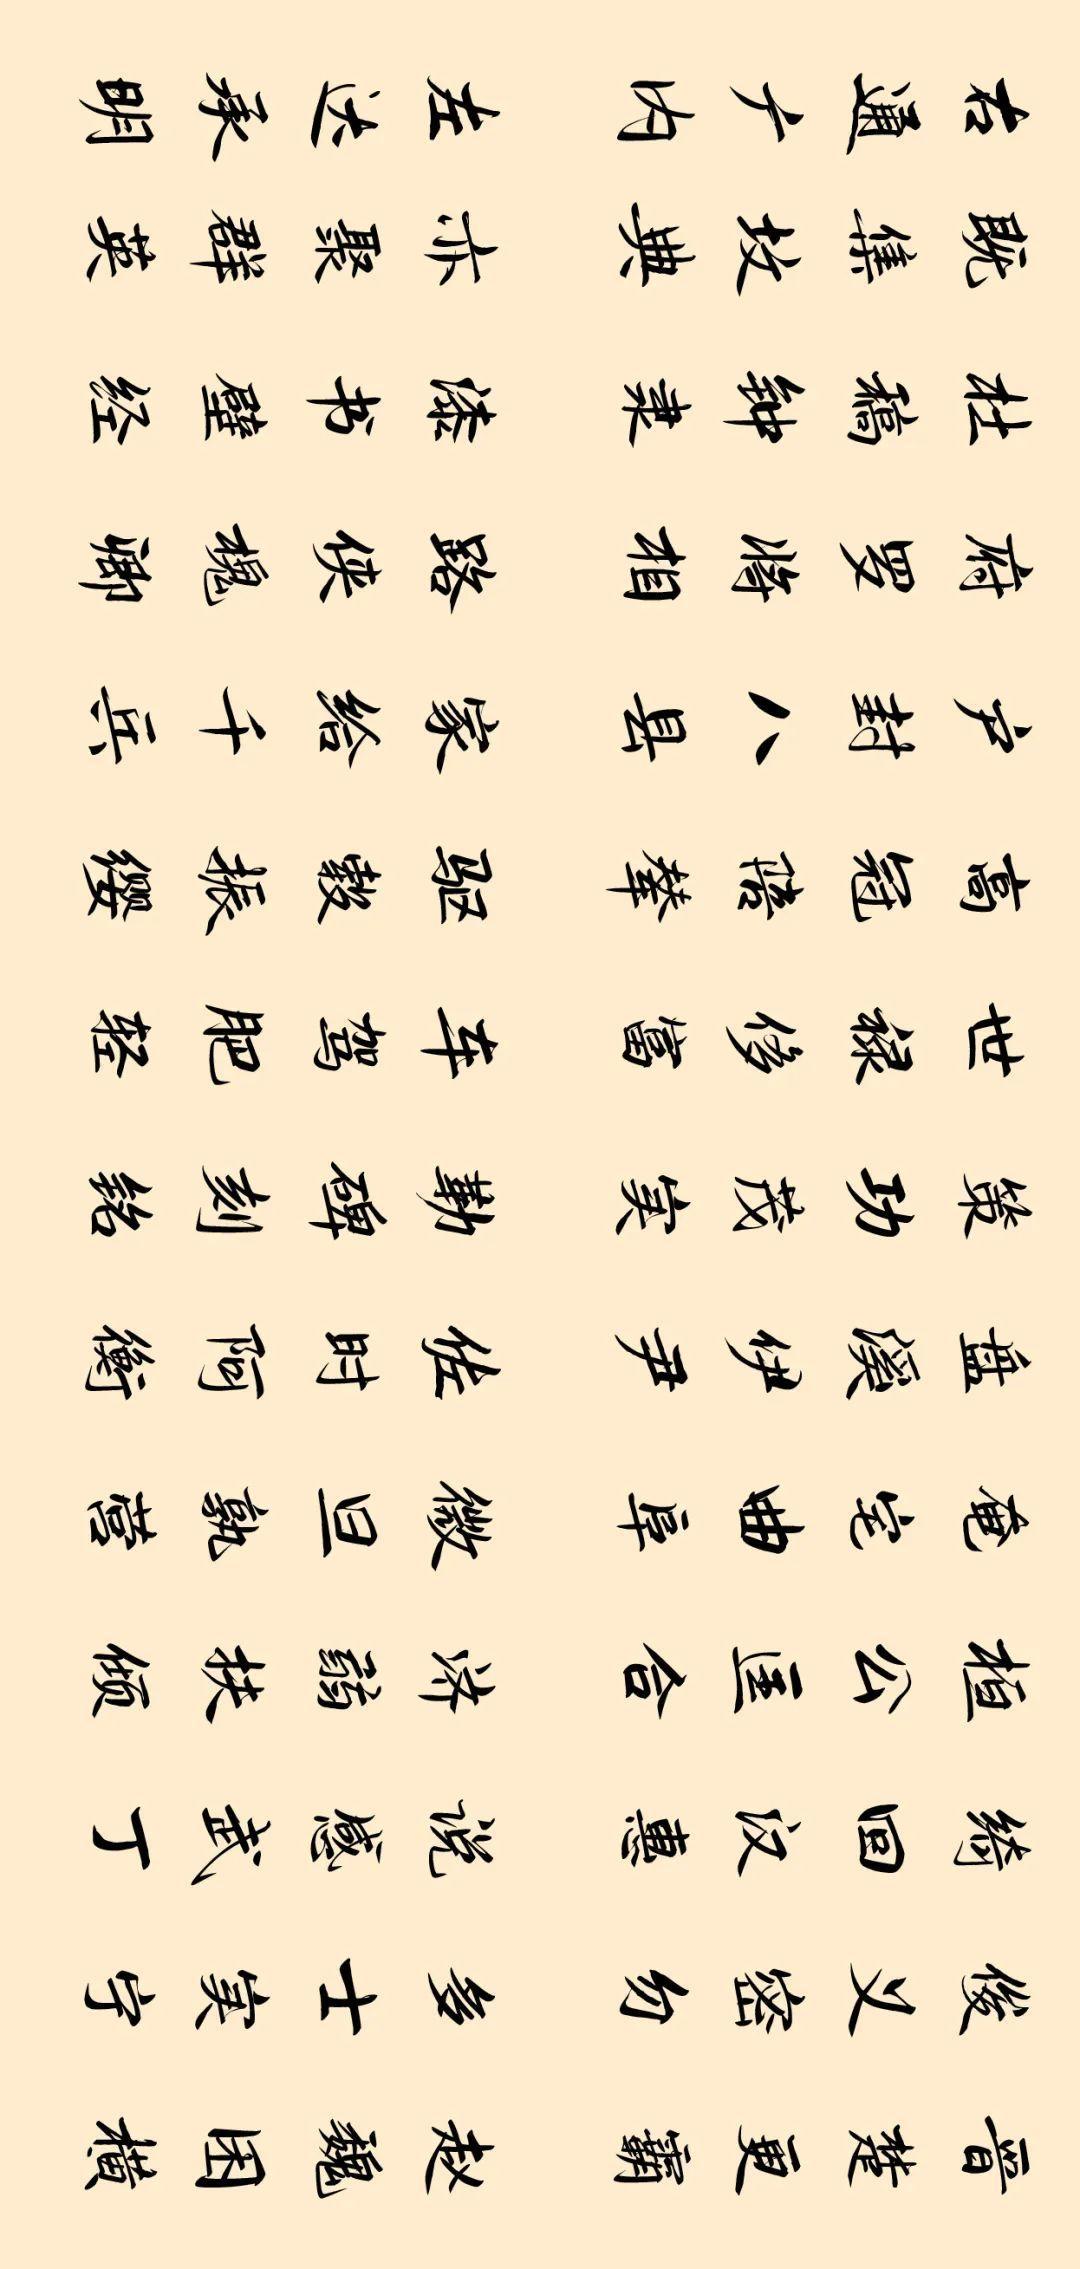 右通广内 左达承明
既集坟典 亦聚群英
杜稿钟隶 漆书壁经
府罗将相 路侠槐卿
户封八县 家给千兵
高冠陪辇 驱毂振缨
世禄侈富 车驾肥轻
策功茂实 勒碑刻铭
盘溪伊尹 佐时阿衡
奄宅曲阜 微旦孰营
桓公匡合 济弱扶倾
绮回汉惠 说感武丁
俊乂密勿 多士实宁
晋楚更霸 赵魏困横